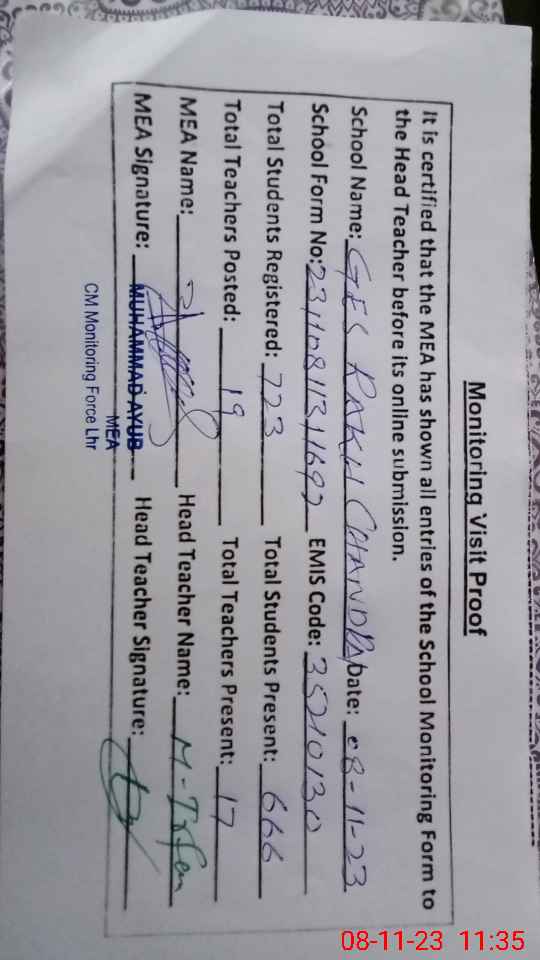 Monitoring Visit Proof
It is certified that the MEA has shown all entries of the School Monitoring Form to
the Head Teacher before its online submission.
School Name: GES RAKH CHANDRA Date: 08-11-23
School Form No: EMIS Code: 35210130
Total Students Registered: 723 Total Students Present: 666
Total Teachers Posted: 19 Total Teachers Present: 17
MEA Name: Head Teacher Name: M-Irfan
MEA Signature: MUHAMMAD AYUB Head Teacher Signature:
MEA
CM Monitoring Force Lhr
08-11-23 11:35